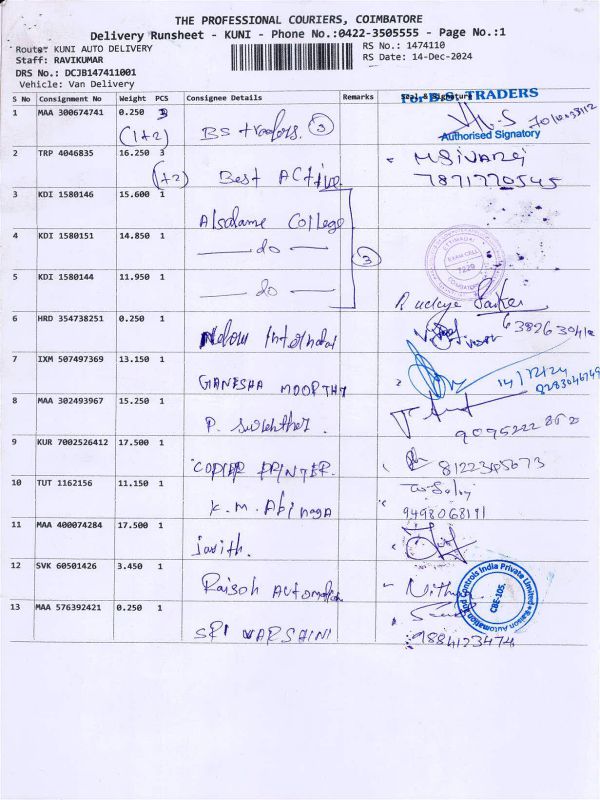 THE PROFESSIONAL COURIERS, COIMBATORE
Delivery Runsheet - KUNI - Phone No.:0422-3505555 - Page No.:1
Route: KUNI AUTO DELIVERY
Staff: RAVIKUMAR
DRS No.: DCJB147411001
Vehicle: Van Delivery
RS No.: 1474110
RS Date: 14-Dec-2024
S No Consignment No Weight PCS Consignee Details Remarks Seal & Signature
For B.S. TRADERS
1 MAA 300674741 0.250
(1+2) BS traders. 3
Authorised Signatory
2 TRP 4046835 16.250 3
(+2) Best Active
7871770545
3 KDI 1580146 15.600 1
Alsalame College
4 KDI 1580151 14.850 1
do
3
EXAM CELL
COIMBATORE
5 KDI 1580144 11.950 1
do
6 HRD 354738251 0.250 1
7 IXM 507497369 13.150 1
GANESHA MOORTHY
14/12/24
8 MAA 302493967 15.250 1
P.
9 KUR 7002526412 17.500 1
COPIER PRINTER.
8122345673
10 TUT 1162156 11.150 1
K.M. Abinaga
9498068191
11 MAA 400074284 17.500 1
12 SVK 60501426 3.450 1
Raison Automation
Raison Automation and Controls India Private Limited
CBE-105.
13 MAA 576392421 0.250 1
SRI VARSHINI
9884123474